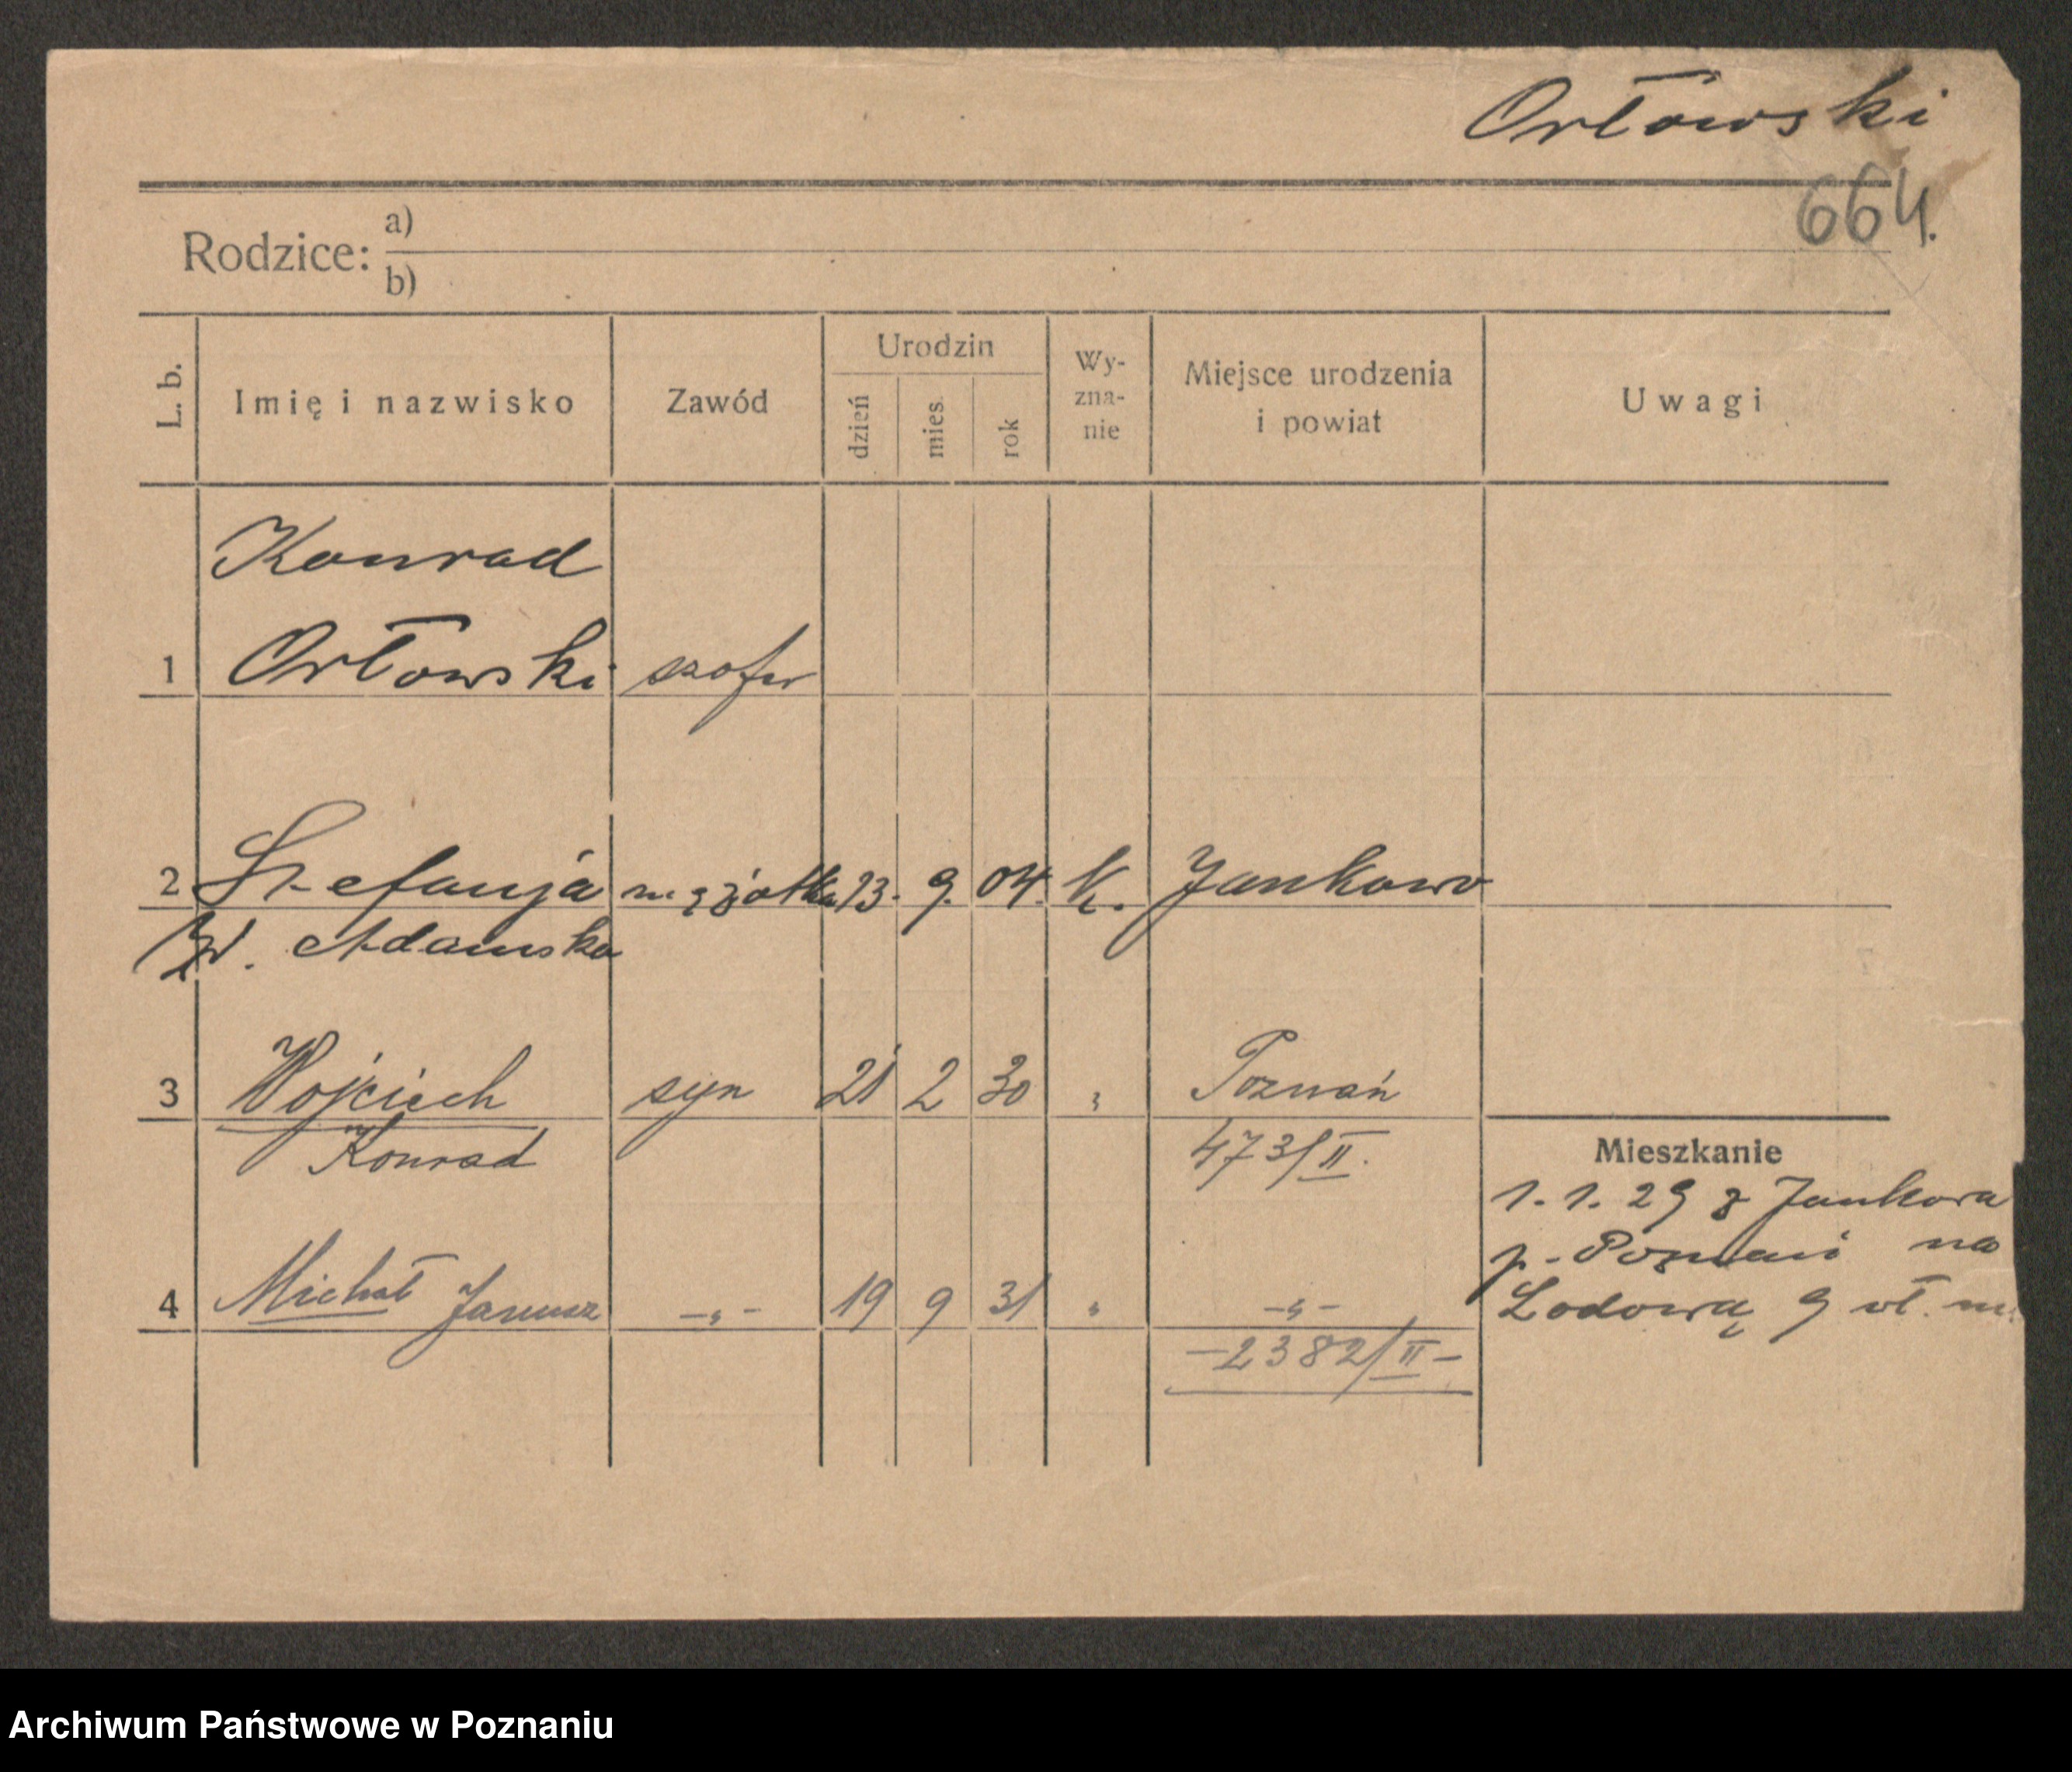 Orłowski
664.
Rodzice: a)
b)
L. b. Imię i nazwisko Zawód Urodzin dzień mies. rok Wy-zna-nie Miejsce urodzenia i powiat Uwagi
Konrad
1 Orłowski szofer
2 Stefanja mężatka 13. 9. 04. k. Jankowo
Zd. Adamska
3 Wojciech syn 21 2 30 " Poznań
Konrad 473/II.
Mieszkanie
1. 1. 29 z Jankowa
p. Poznań na
Lodową 9 wł. m.
4 Michał Janusz -"- 19 9 31 " -"-
-2382/II-
Archiwum Państwowe w Poznaniu